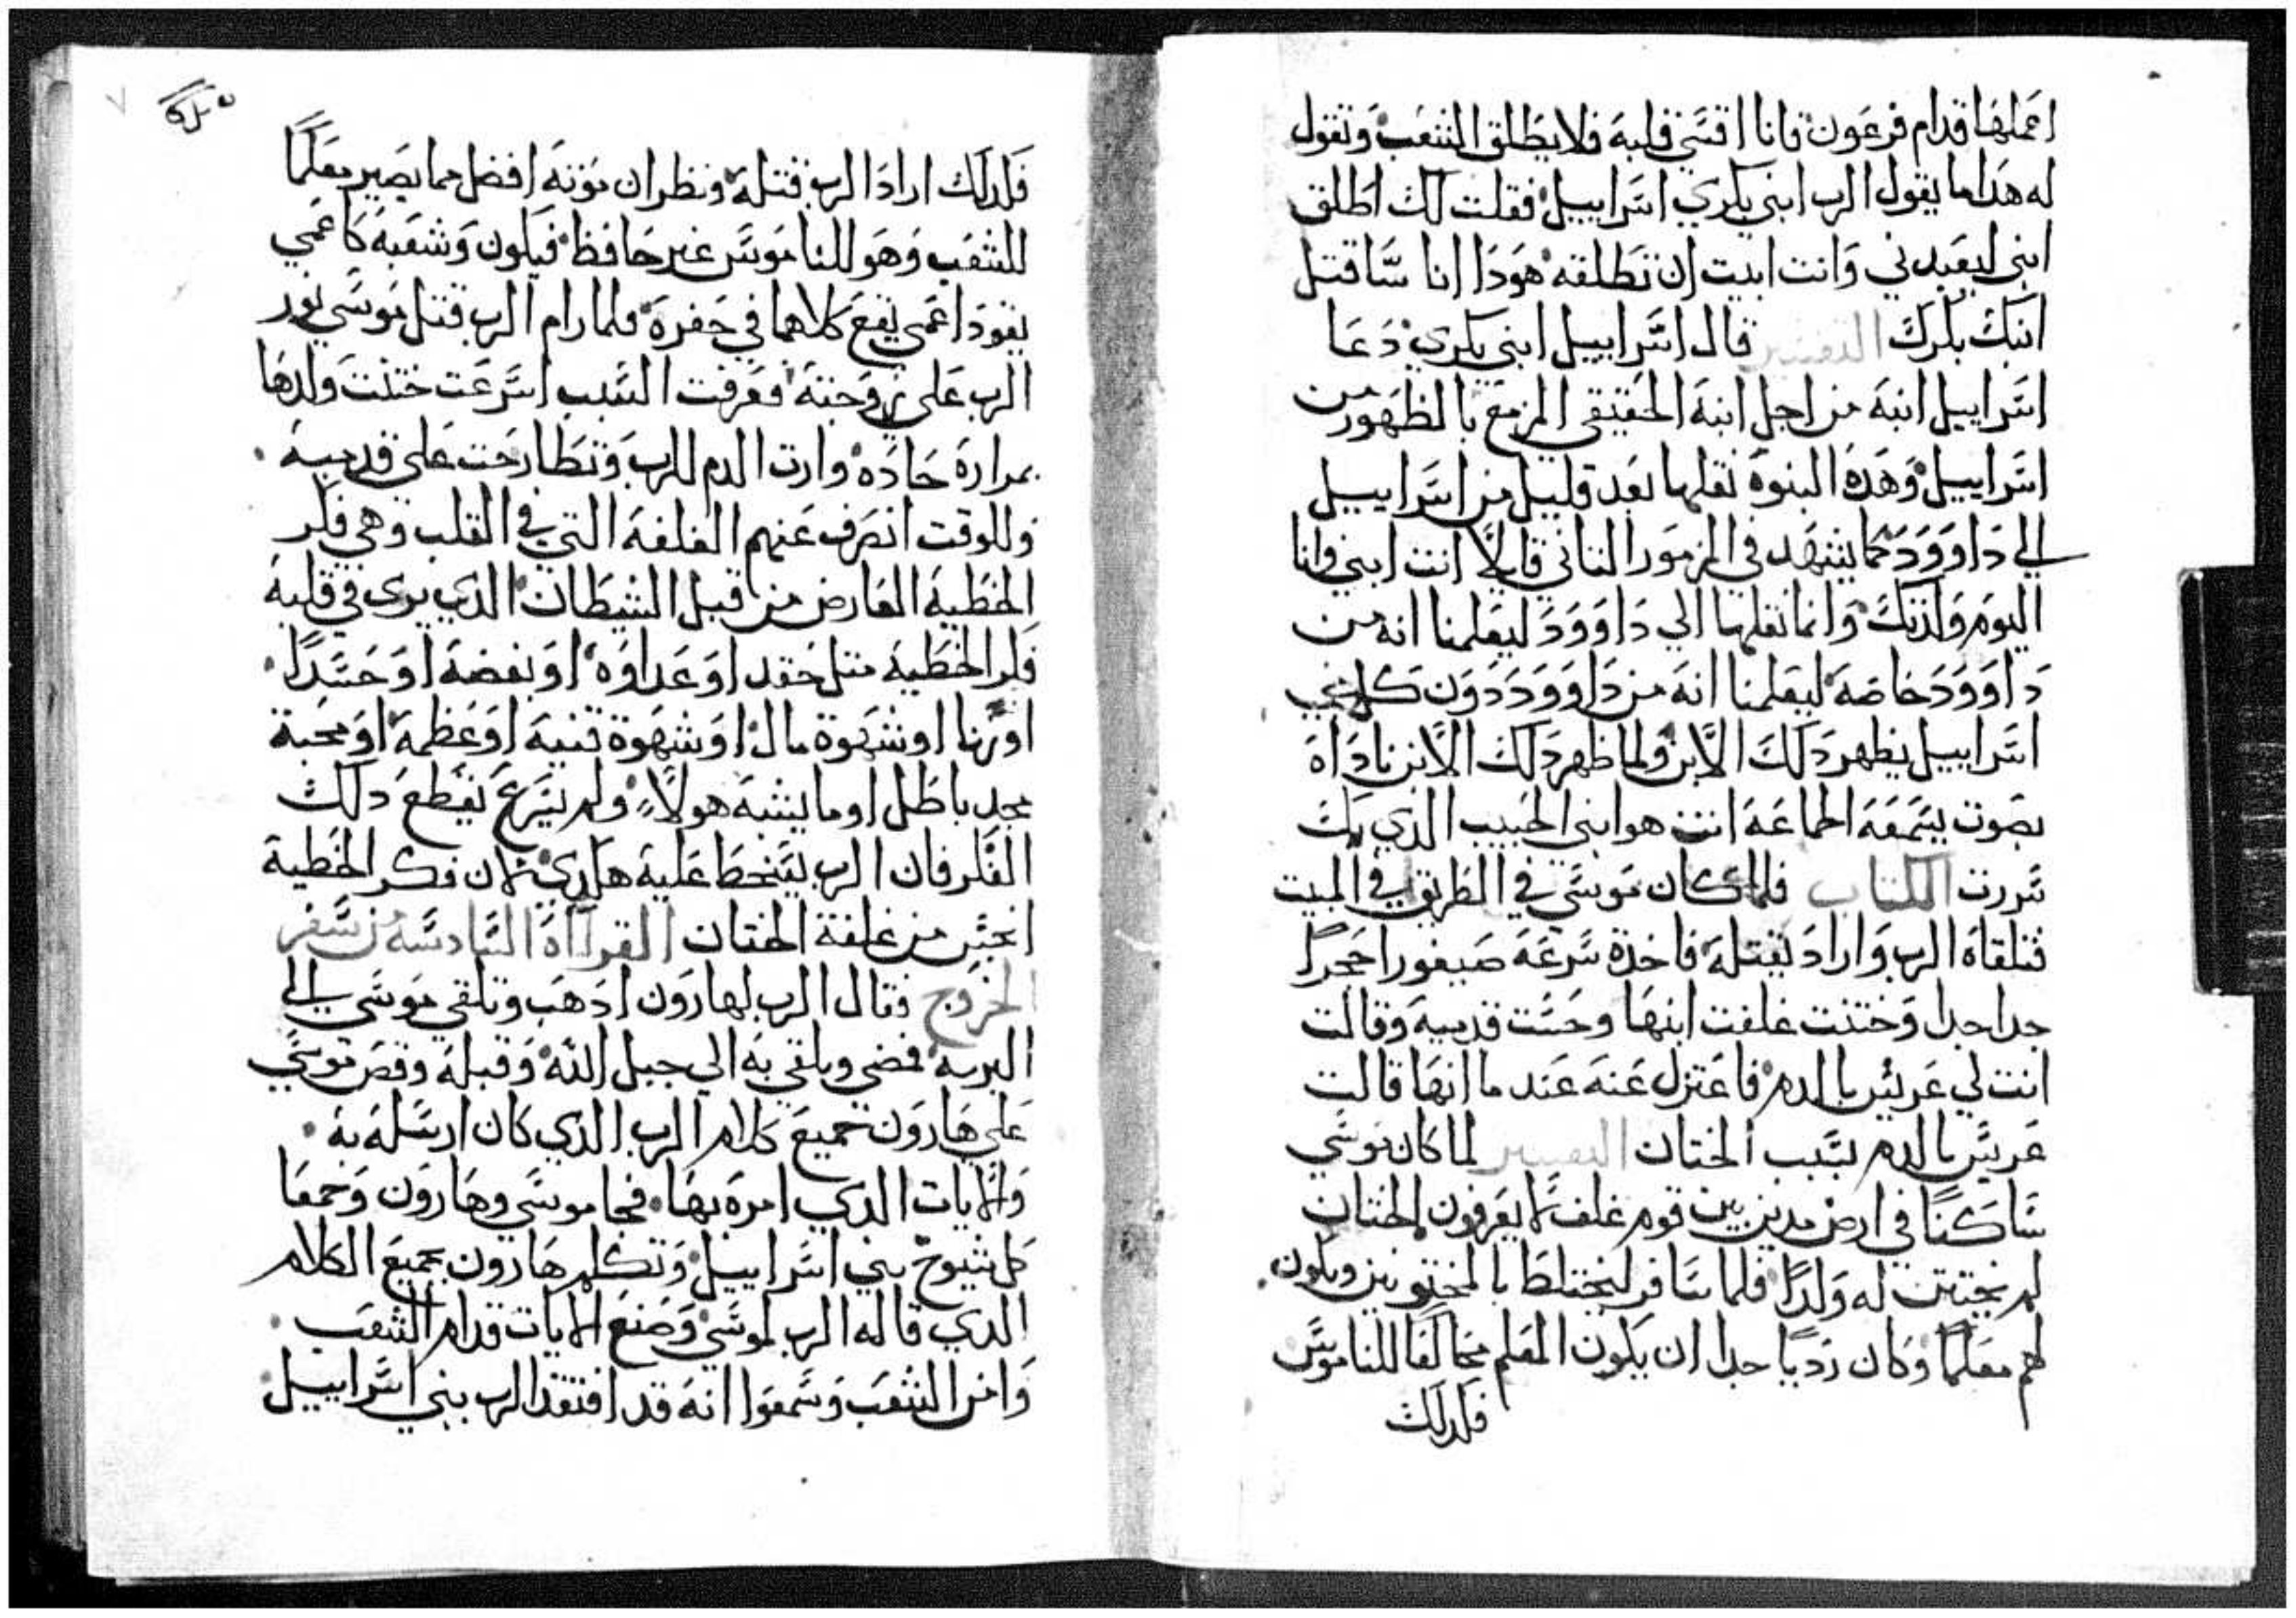 اعملها قدام فرعون فانا اقسي قلبه فلا يطلق الشعب وتقول
له هدا ما يقول الرب ابني بكري اسراييل فقلت لك اطلق
ابني ليعبدني وانت ابيت ان تطلقه هودا انا ساقتل
ابنك بكرك التفسير قال اسراييل ابني بكري دعا
اسراييل ابنه من اجل ابنه الحقيقي المزمع بالظهور من
اسراييل وهده البنوه نقلها بعد قليل من اسراييل
الي داوود كما يشهد في المزمور التاني قايلاً انت ابني وانا
اليوم ولدتك وانما نقلها الي داوود ليعلمنا انه من
داوود خاصه ليعلمنا انه من داوود دون كل بني
اسراييل يظهر دلك الابن ولما ظهر دلك الابن ناداه
بصوت يسمعه الجماعه انت هو ابني الحبيب الدي بك
سررت الكتاب فلما كان موسي في الطريق في المبيت
فتلقاه الرب واراد يقتله فاخدة سرعه صيفورا حجراً
حدا حدا وختنت غلفت ابنها وحست قدميه وقالت
انت لي عريس بالدم فاعتزل عنه عند ما انها قالت
عريس بالدم بسبب الختان التفسير لما كان موسي
ساكناً في ارض مدين بين قوم غلف لا يعرفون الختان
لم يختتن له ولداً فلما سافر ليختلط بالمختونين ويكون
لهم معلماً وكان رديا جدا ان يكون المعلم مخالفا للناموس
فلدلك
فلدلك اراد الرب قتله ونظر ان موته افضل مما يصير معلماً
للشعب وهو للناموس غير حافظ فيكون وشعبه كاعمي
يقود اعمي يقع كلاهما في حفرة فلما رام الرب قتل موسي نور
الرب علي زوجته فعرفت السبب اسرعت ختنت ولدها
بمرارة حاده وارت الدم للرب وتطارحت علي قدميه
وللوقت انصرف عنهم الغلفة التي في القلب وهي فكر
الخطية العارض من قبل الشيطان الدي يري في قلبه
فكر الخطيه متل حقد او عداوه او بغضه او حسداً
او زنا او شهوة مال او شهوة قنيه او عظمه او محبة
مجد باطل او ما يشبه هولاء ولم يسرع يقطع دلك
الفكر فان الرب يسخط عليه هكدي لان فكر الخطية
انجس من غلفة الختان القراآة السادسة من سفر
الخروج فقال الرب لهارون ادهب وتلقي موسي الي
البريه فمضي وتلقي به الي جبل الله وقبله وقص موسي
علي هارون جميع كلام الرب الدي كان ارسله به
والايات الدي امره بها فجا موسي وهارون وجمعا
كل شيوخ بني اسراييل وتكلم هارون بجميع الكلام
الدي قاله الرب لموسي وصنع الايات قدام الشعب
وامن الشعب وسمعوا انه قد افتقد الرب بني اسراييل